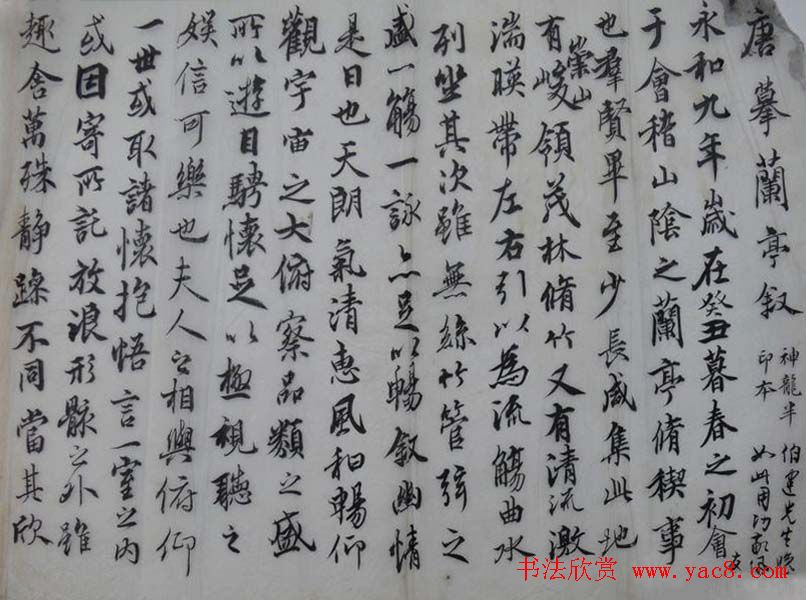 唐摹蘭亭叙
神龍半
印本
伯建先生
永和九年歲在癸丑暮春之初會
于會稽山陰之蘭亭脩稧事
也羣賢畢至少長咸集此地
有崇山峻領茂林脩竹又有清流激
湍暎帶左右引以為流觴曲水
列坐其次雖無絲竹管弦之
盛一觴一詠亦足以暢叙幽情
是日也天朗氣清惠風和暢仰
觀宇宙之大俯察品類之盛
所以遊目騁懷足以極視聽之
娱信可樂也夫人之相與俯仰
一世或取諸懷抱悟言一室之內
或因寄所託放浪形骸之外雖
趣舎萬殊静躁不同當其欣
书法欣赏 www.yac8.com